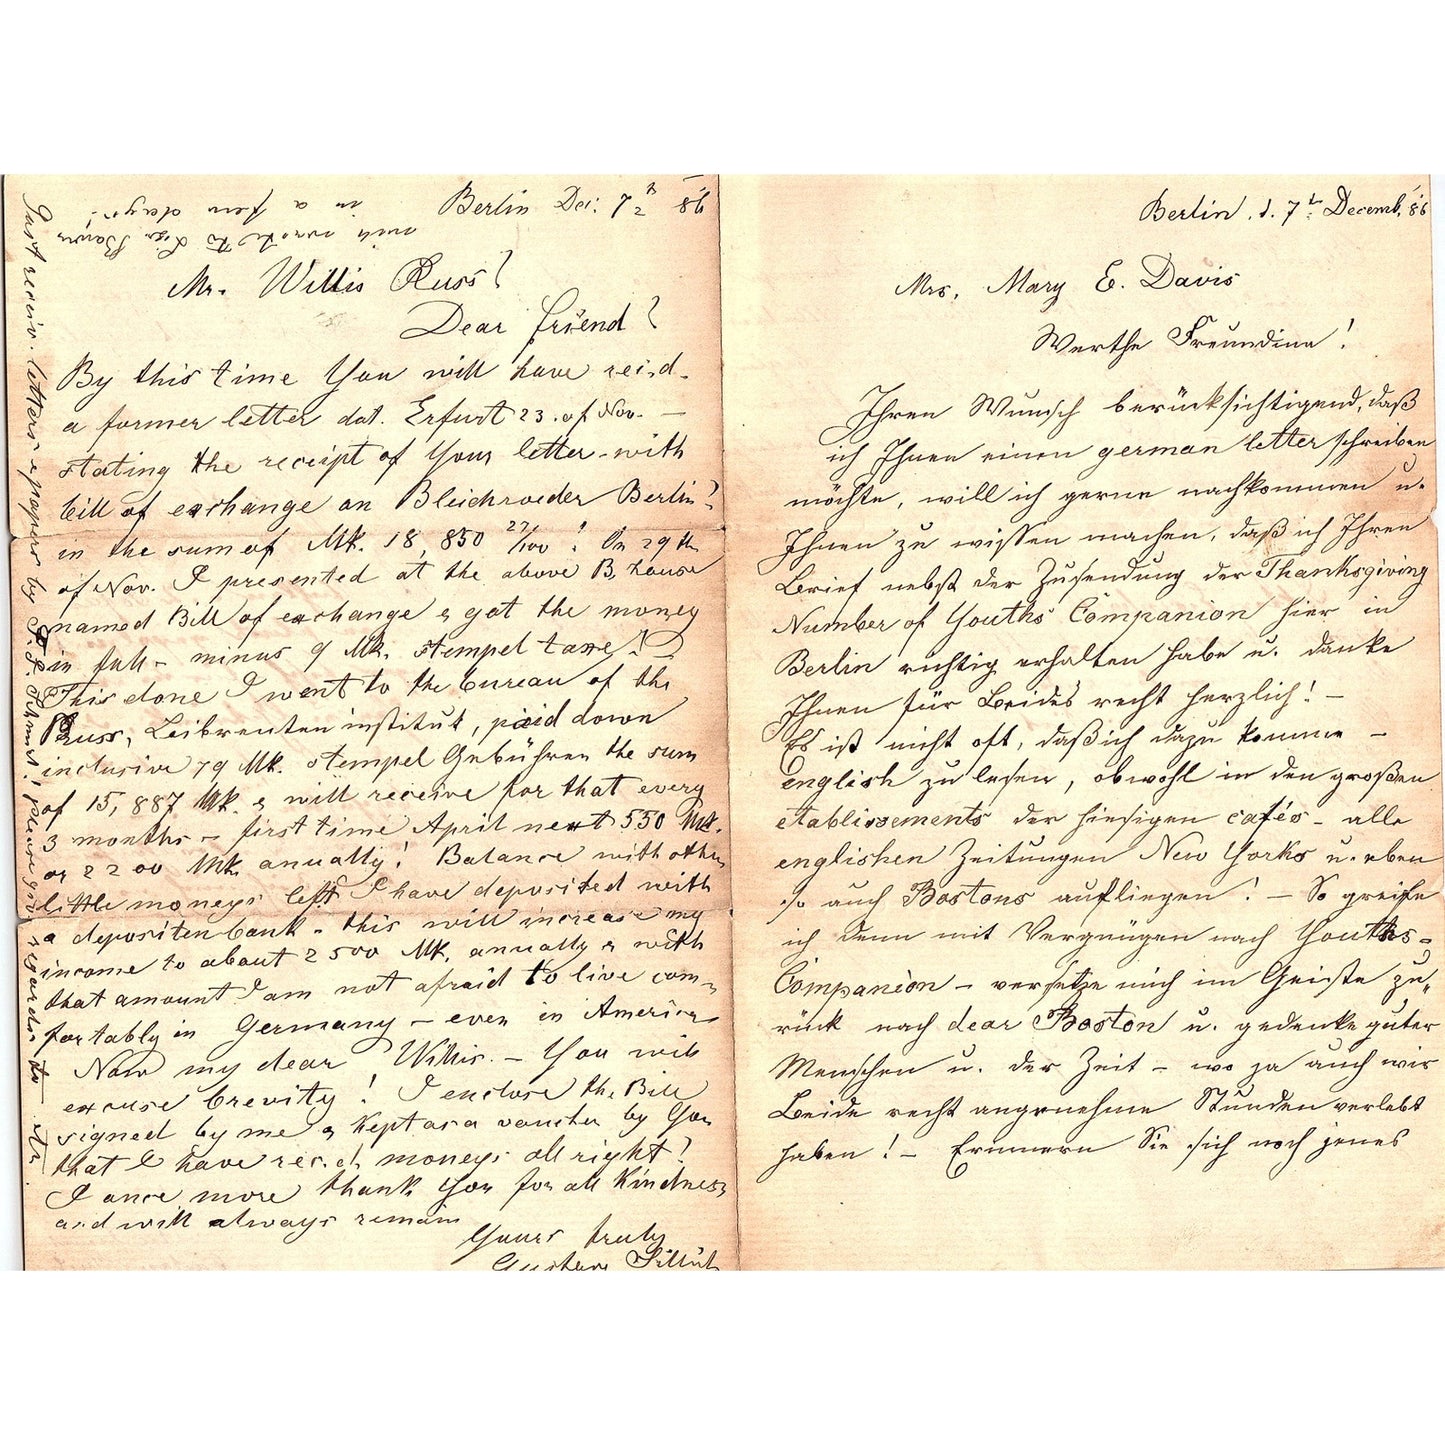 Berlin Dec. 7 86
Mr. Willis Russ!
Dear friend!
By this time You will have rec'd.
a former letter dat. Erfurt 23. of Nov. —
stating the receipt of Your letter - with
bill of exchange on Bleichroeder Berlin!
in the sum of Mk. 18,850 27/100. On 29th
of Nov. I presented at the above B. house
named Bill of exchange & got the money
in full - minus 9 Mk. stempel taxe!
This done I went to the bureau of the
Leibrenten institut, paid down
inclusive 79 Mk. stempel Gebühren the sum
of 15,887 Mk. & will receive for that every
3 months - first time April next 550 Mk.
or 2200 Mk. anually! Balance with other
little moneys left I have deposited with
a depositenbank - this will increase my
income to about 2500 Mk. anually & with
that amount I am not afraid to live com-
fortably in Germany - even in America
Now my dear Willis. - You will
excuse brevity! I enclose the Bill
signed by me & kept as a voucher by You
that I have rec.d. moneys all right!
I once more thank You for all kindness
and will always remain
Yours truly
Gustave
in a few days!
will write to Bowers
Just receiv. letters & papers by please give regards to
Berlin. d. 7. Decemb. 86
Mrs. Mary E. Davis
Werthe Freundinn!
Ihren Wunsch berücksichtigend, daß
ich Ihnen einen german letter schreiben
möchte, will ich gerne nachkommen u.
Ihnen zu wissen machen, daß ich Ihren
Brief nebst der Zusendung der Thanksgiving
Number of Youths' Companion hier in
Berlin richtig erhalten habe u. danke
Ihnen für Beides recht herzlich! —
Es ist nicht oft, daß ich dazu komme —
english zu lesen, obwohl in den großen
etablissements der hiesigen cafés - alle
englischen Zeitungen New Yorks u. eben
so auch Bostons aufliegen! — So greife
ich denn mit Vergnügen nach Youths-
Companion — versetze mich im Geiste zu,,
rück nach dear Boston u. gedenke guter
Menschen u. der Zeit - wo ja auch wir
Beide recht angenehme Stunden verlebt
haben! — Erinnern Sie sich noch jenes